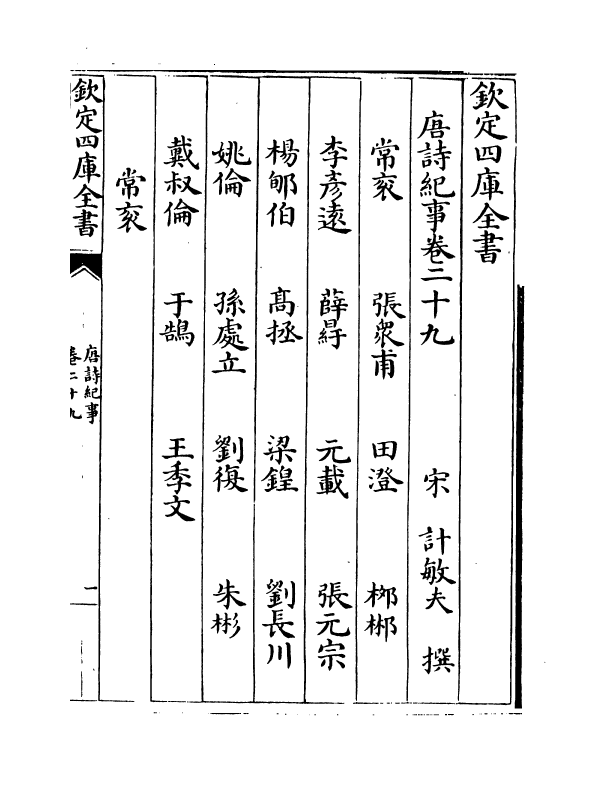 欽定四庫全書
唐詩紀事卷二十九　宋　計敏夫　撰
常衮　張衆甫　田澄　栁郴
李彥遠　薛㝵　元載　張元宗
楊郇伯　高拯　梁鍠　劉長川
姚倫　孫處立　劉復　朱彬
戴叔倫　于鵠　王季文
常衮
欽定四庫全書
唐詩紀事
卷二十九
一